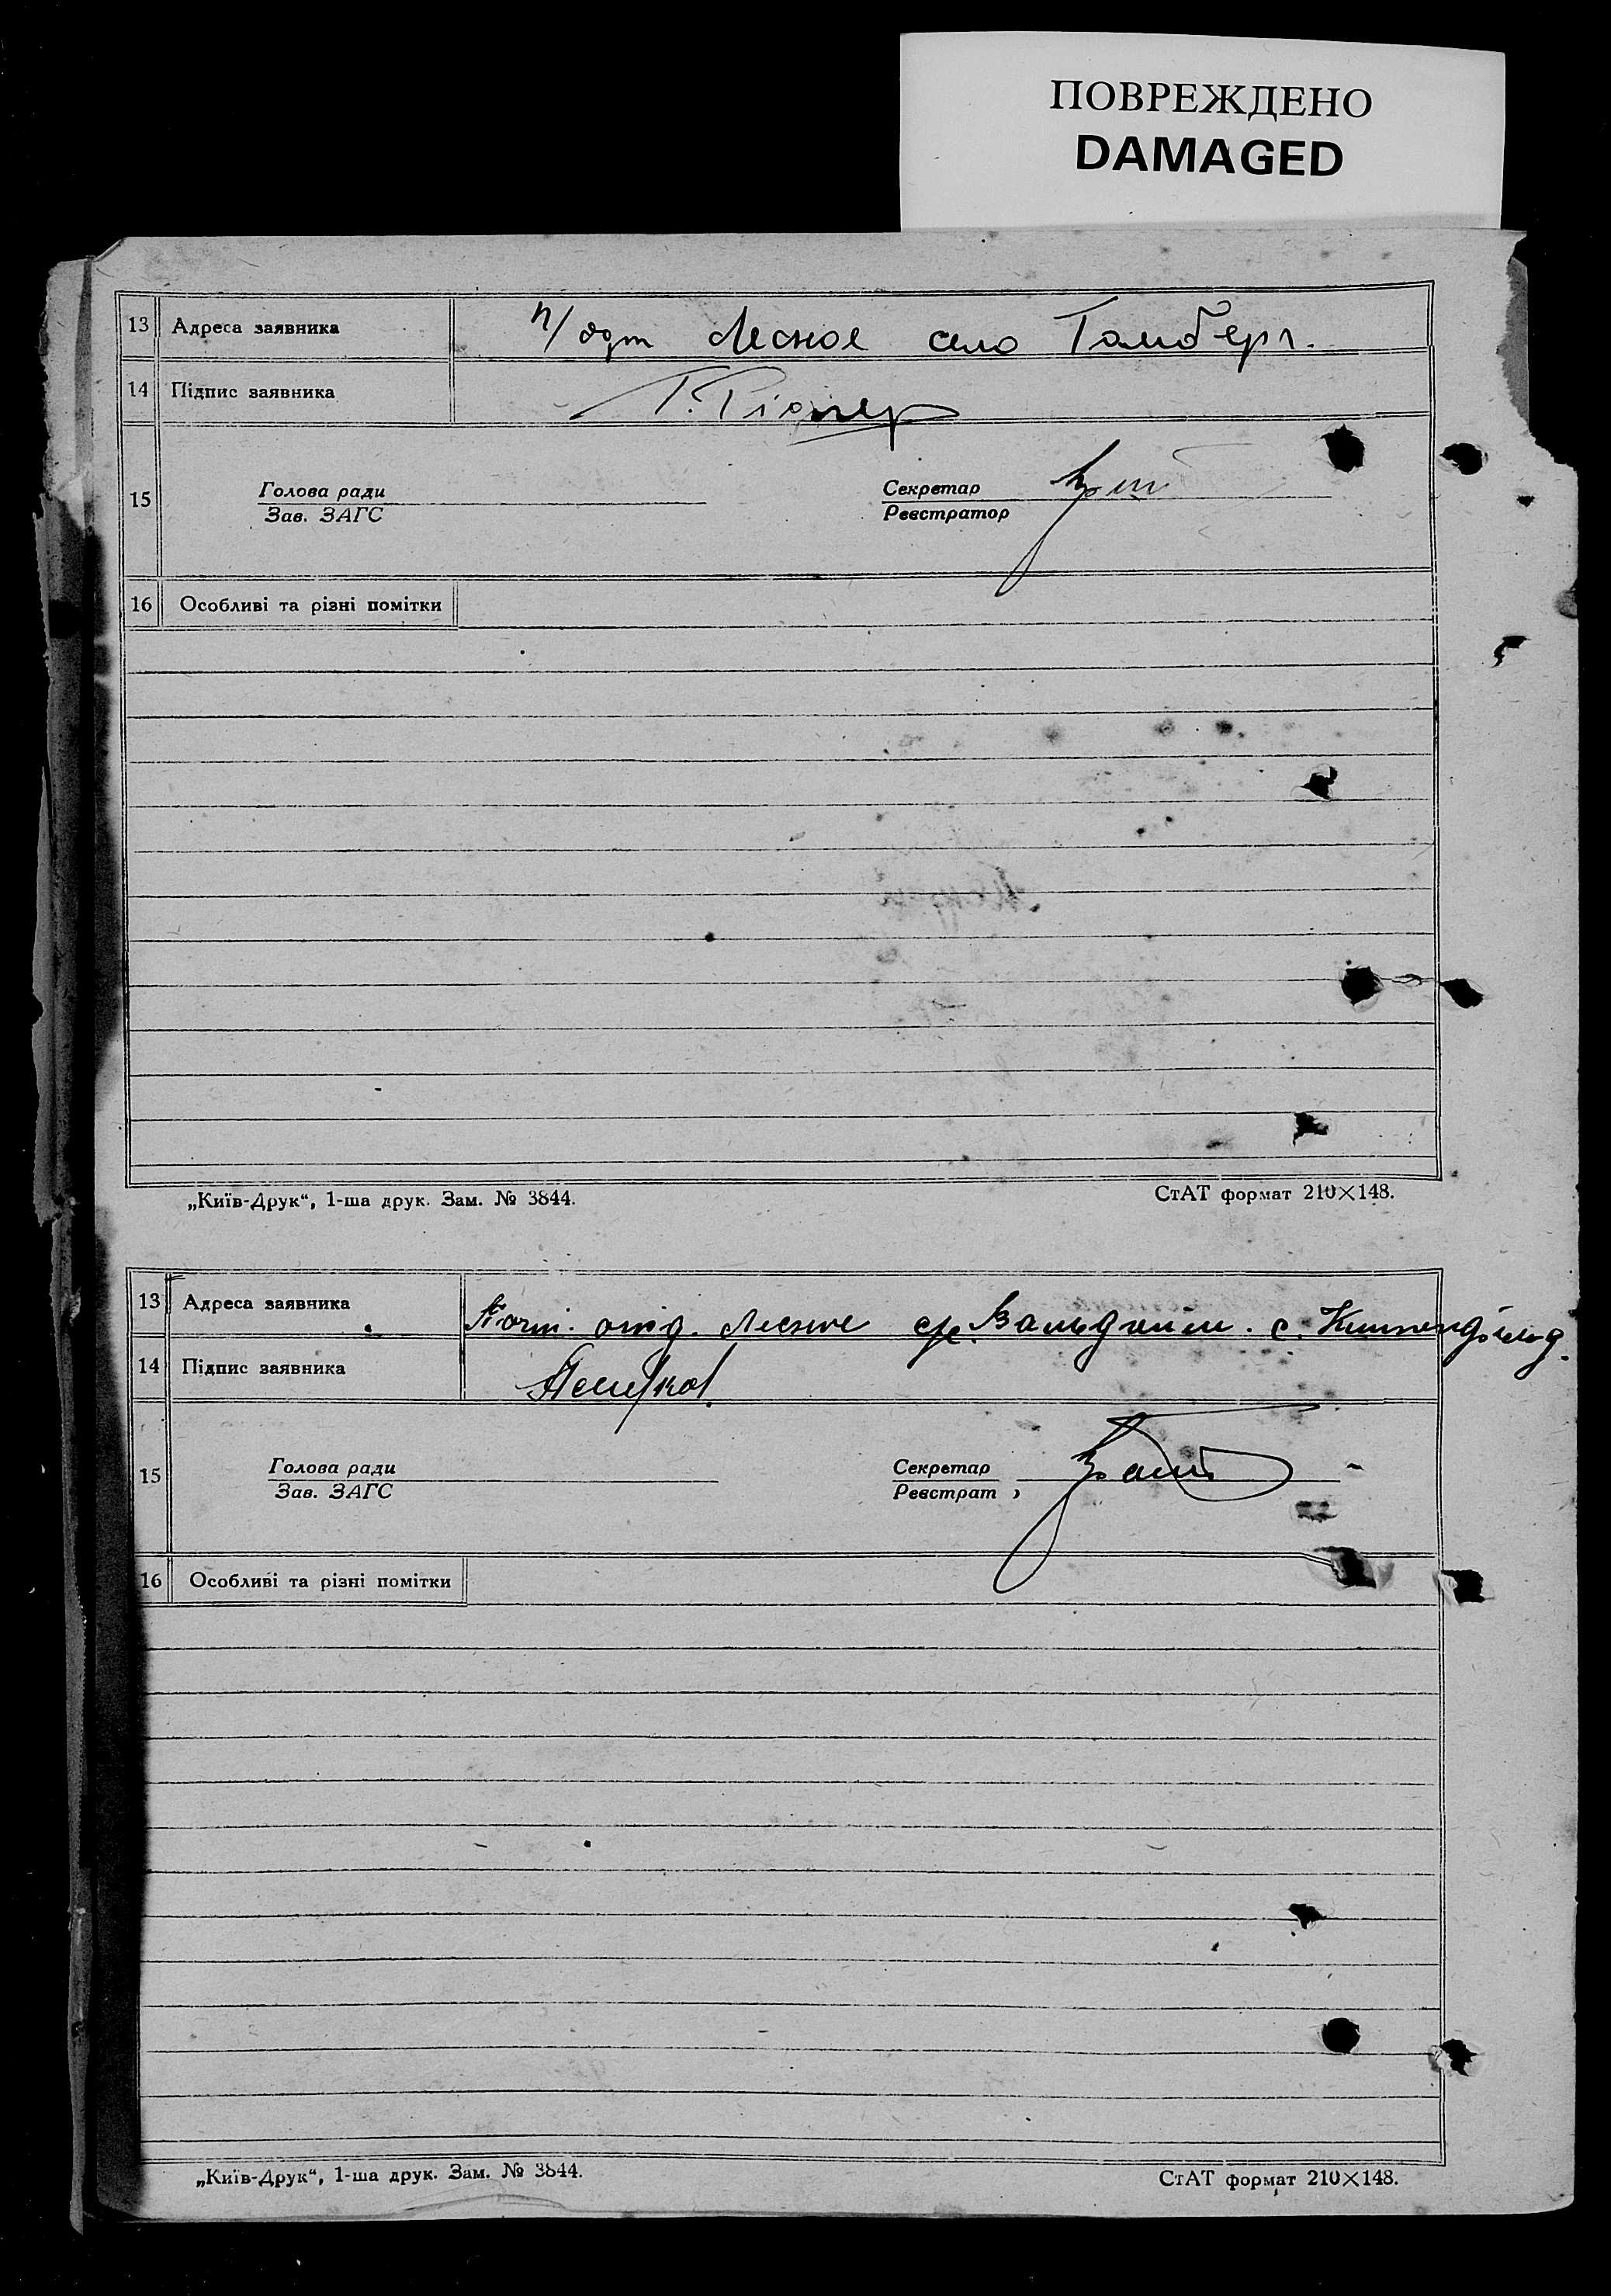 ПОВРЕЖДЕНО
DAMAGED
13 Адреса заявника п/одт Лесное село Гамберг.
14 Підпис заявника Г.
15 Голова ради Секретар
Зав. ЗАГС Реєстратор
16 Особливі та різні помітки
„Київ-Друк“, 1-ша друк. Зам. № 3844. СтАТ формат 210×148.
13 Адреса заявника Почт. отд. Лесное Вальдгейм. с.
14 Підпис заявника
15 Голова ради Секретар
Зав. ЗАГС Реєстрат
16 Особливі та різні помітки
„Київ-Друк“, 1-ша друк. Зам. № 3844. СтАТ формат 210×148.